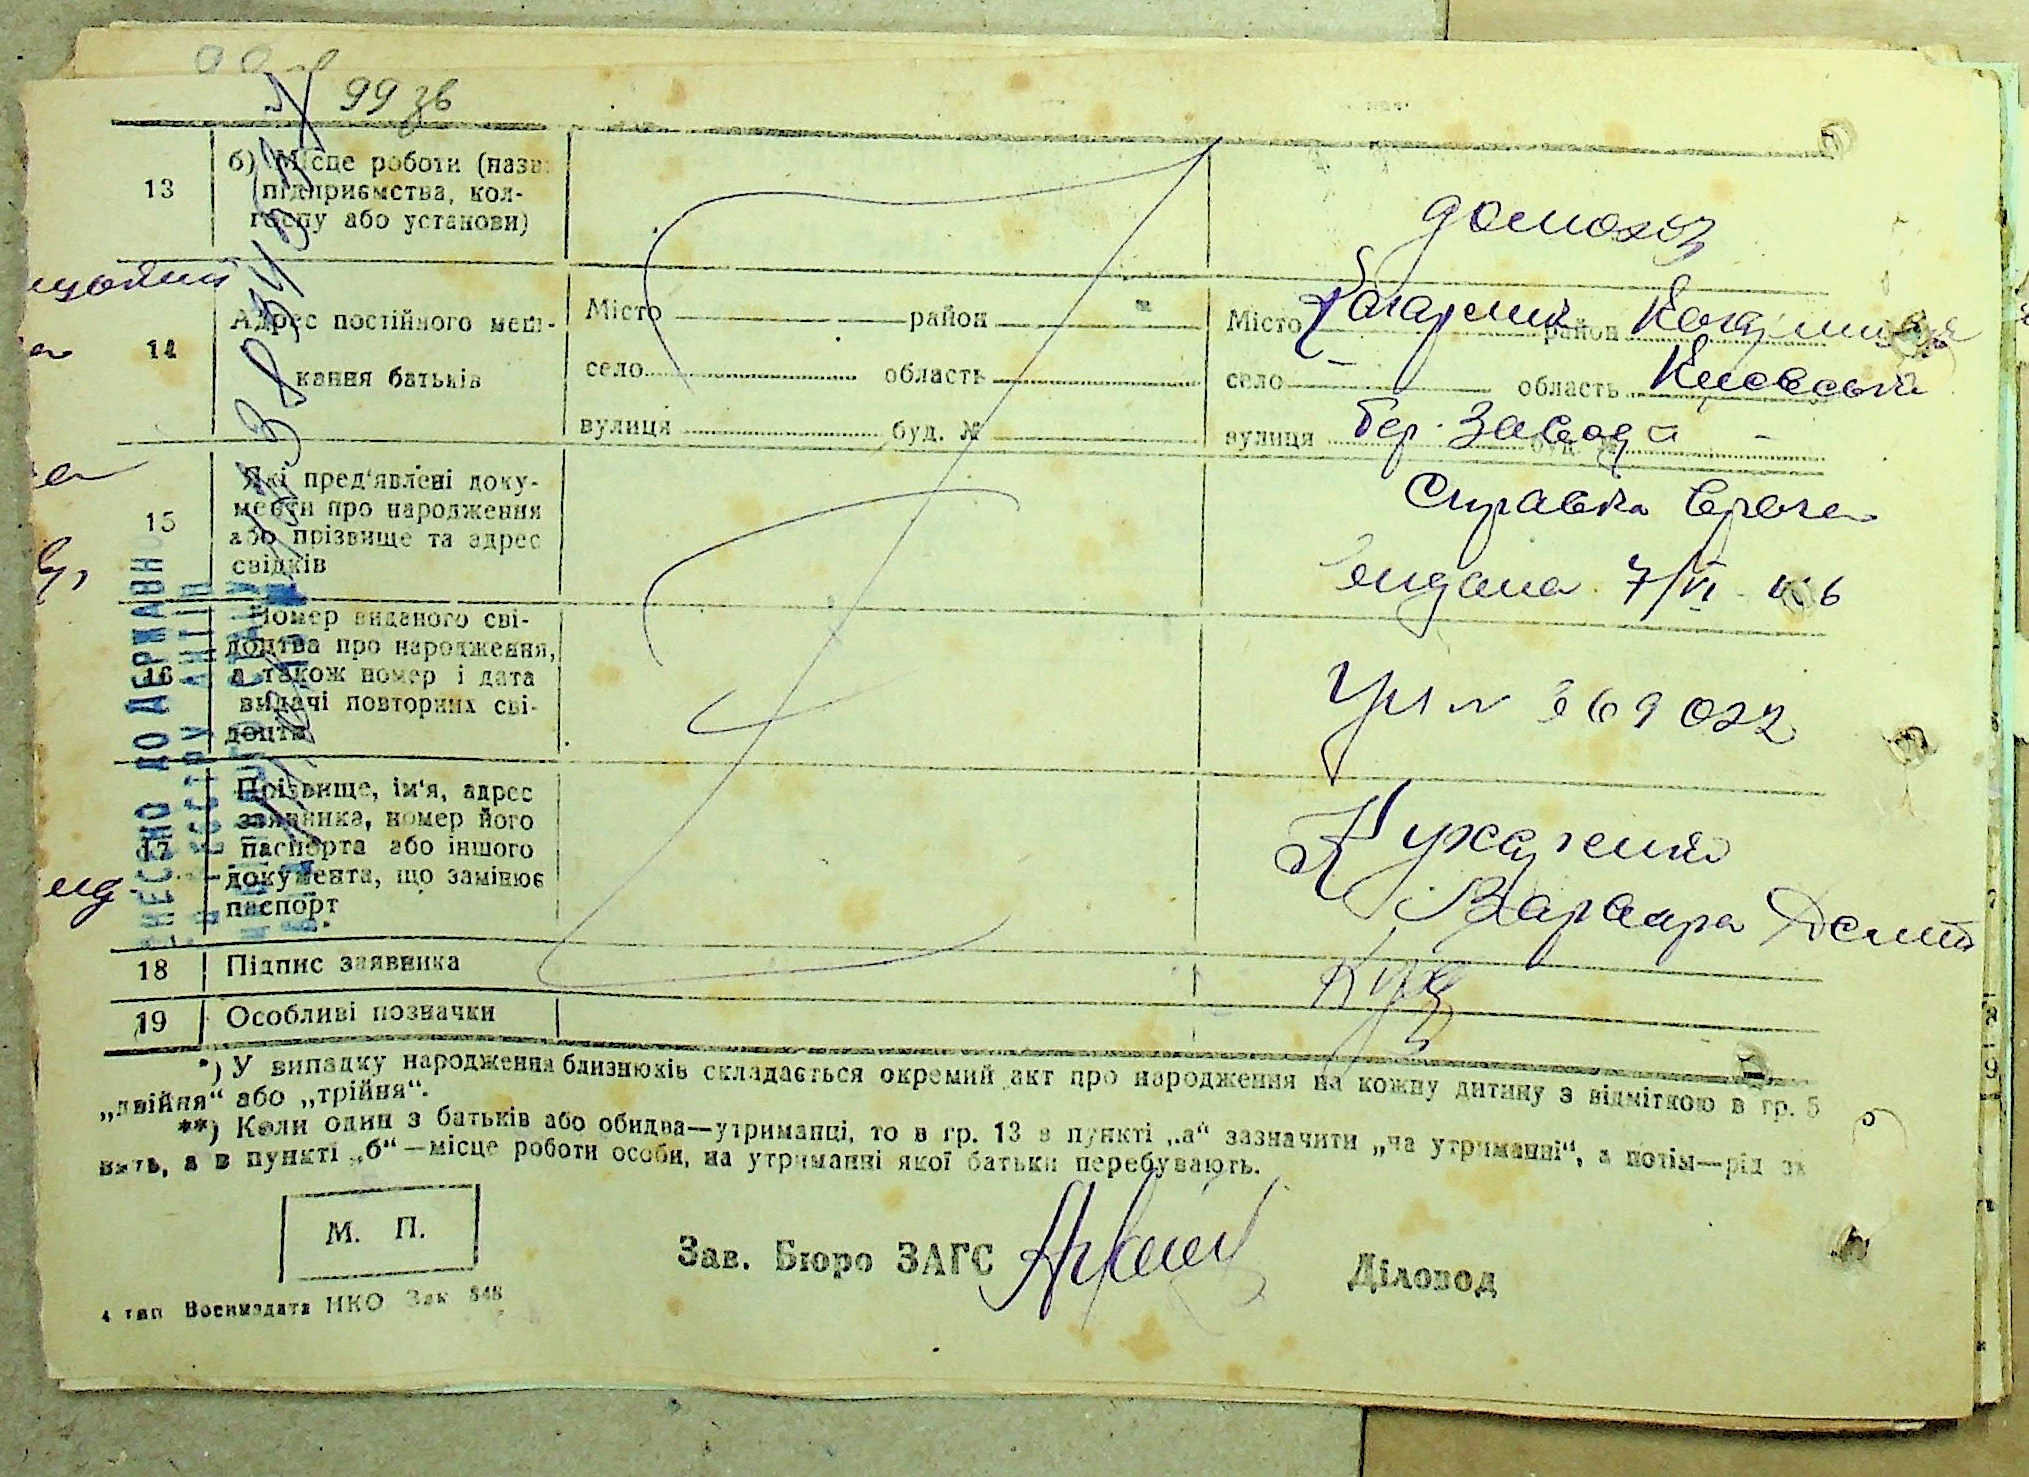 99 зв
13
б) Місце роботи (назва
підприємства, кол-
госпу або установи)
домохоз
14
Адрес постійного меш-
кання батьків
Місто район
село область
вулиця буд. №
Місто Кагарлик район Кагарлицький
село — область Київська
вулиця бер. Завода —
15
Які пред'явлені доку-
менти про народження
або прізвище та адрес
свідків
Справка врача
видана 7/VI
16
Номер виданого сві-
доцтва про народження,
а також номер і дата
видачі повторних сві-
доцтв
№ 369022
17
Прізвище, ім'я, адрес
заявника, номер його
паспорта або іншого
документа, що замінює
паспорт
Варвара
18 Підпис заявника
19 Особливі позначки
ВНЕСЕНО ДО ДЕРЖАВНОГО
РЕЄСТРУ АКТІВ
ЦИВІЛЬНОГО СТАНУ
*) У випадку народження близнюків складається окремий акт про народження на кожну дитину з відміткою в гр. 5
„двійня“ або „трійня“.
**) Коли один з батьків або обидва—утриманці, то в гр. 13 в пункті „а“ зазначити „на утриманні“, а потім—рід за
нять, а в пункті „б“ —місце роботи особи, на утриманні якої батьки перебувають.
М. П.
Зав. Бюро ЗАГС
Діловод
4 тип Воениздата НКО Зак 848